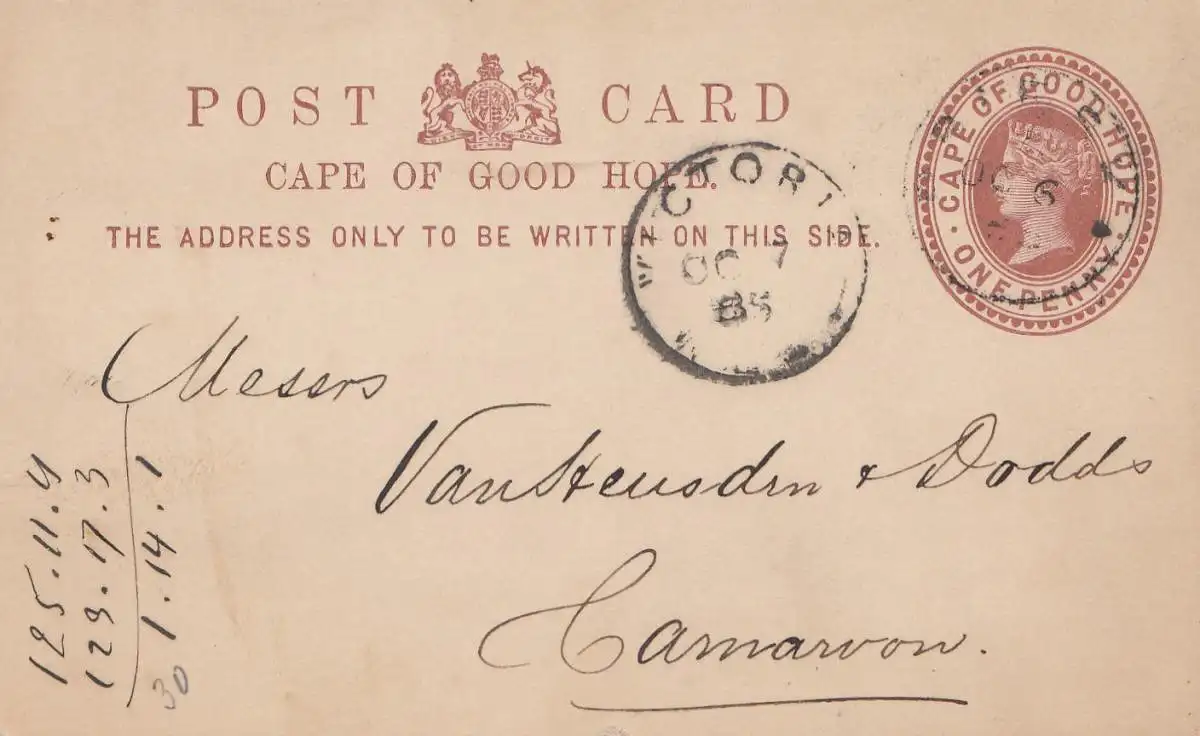 POST CARD
CAPE OF GOOD HOPE.
THE ADDRESS ONLY TO BE WRITTEN ON THIS SIDE.
CAPE OF GOOD HOPE
ONE PENNY
OC 6
VICTORIA W
OC 7
85
Messrs
Van Heusden & Dodds
Carnarvon.
125.11.4
123.17.3
1.14.1
30